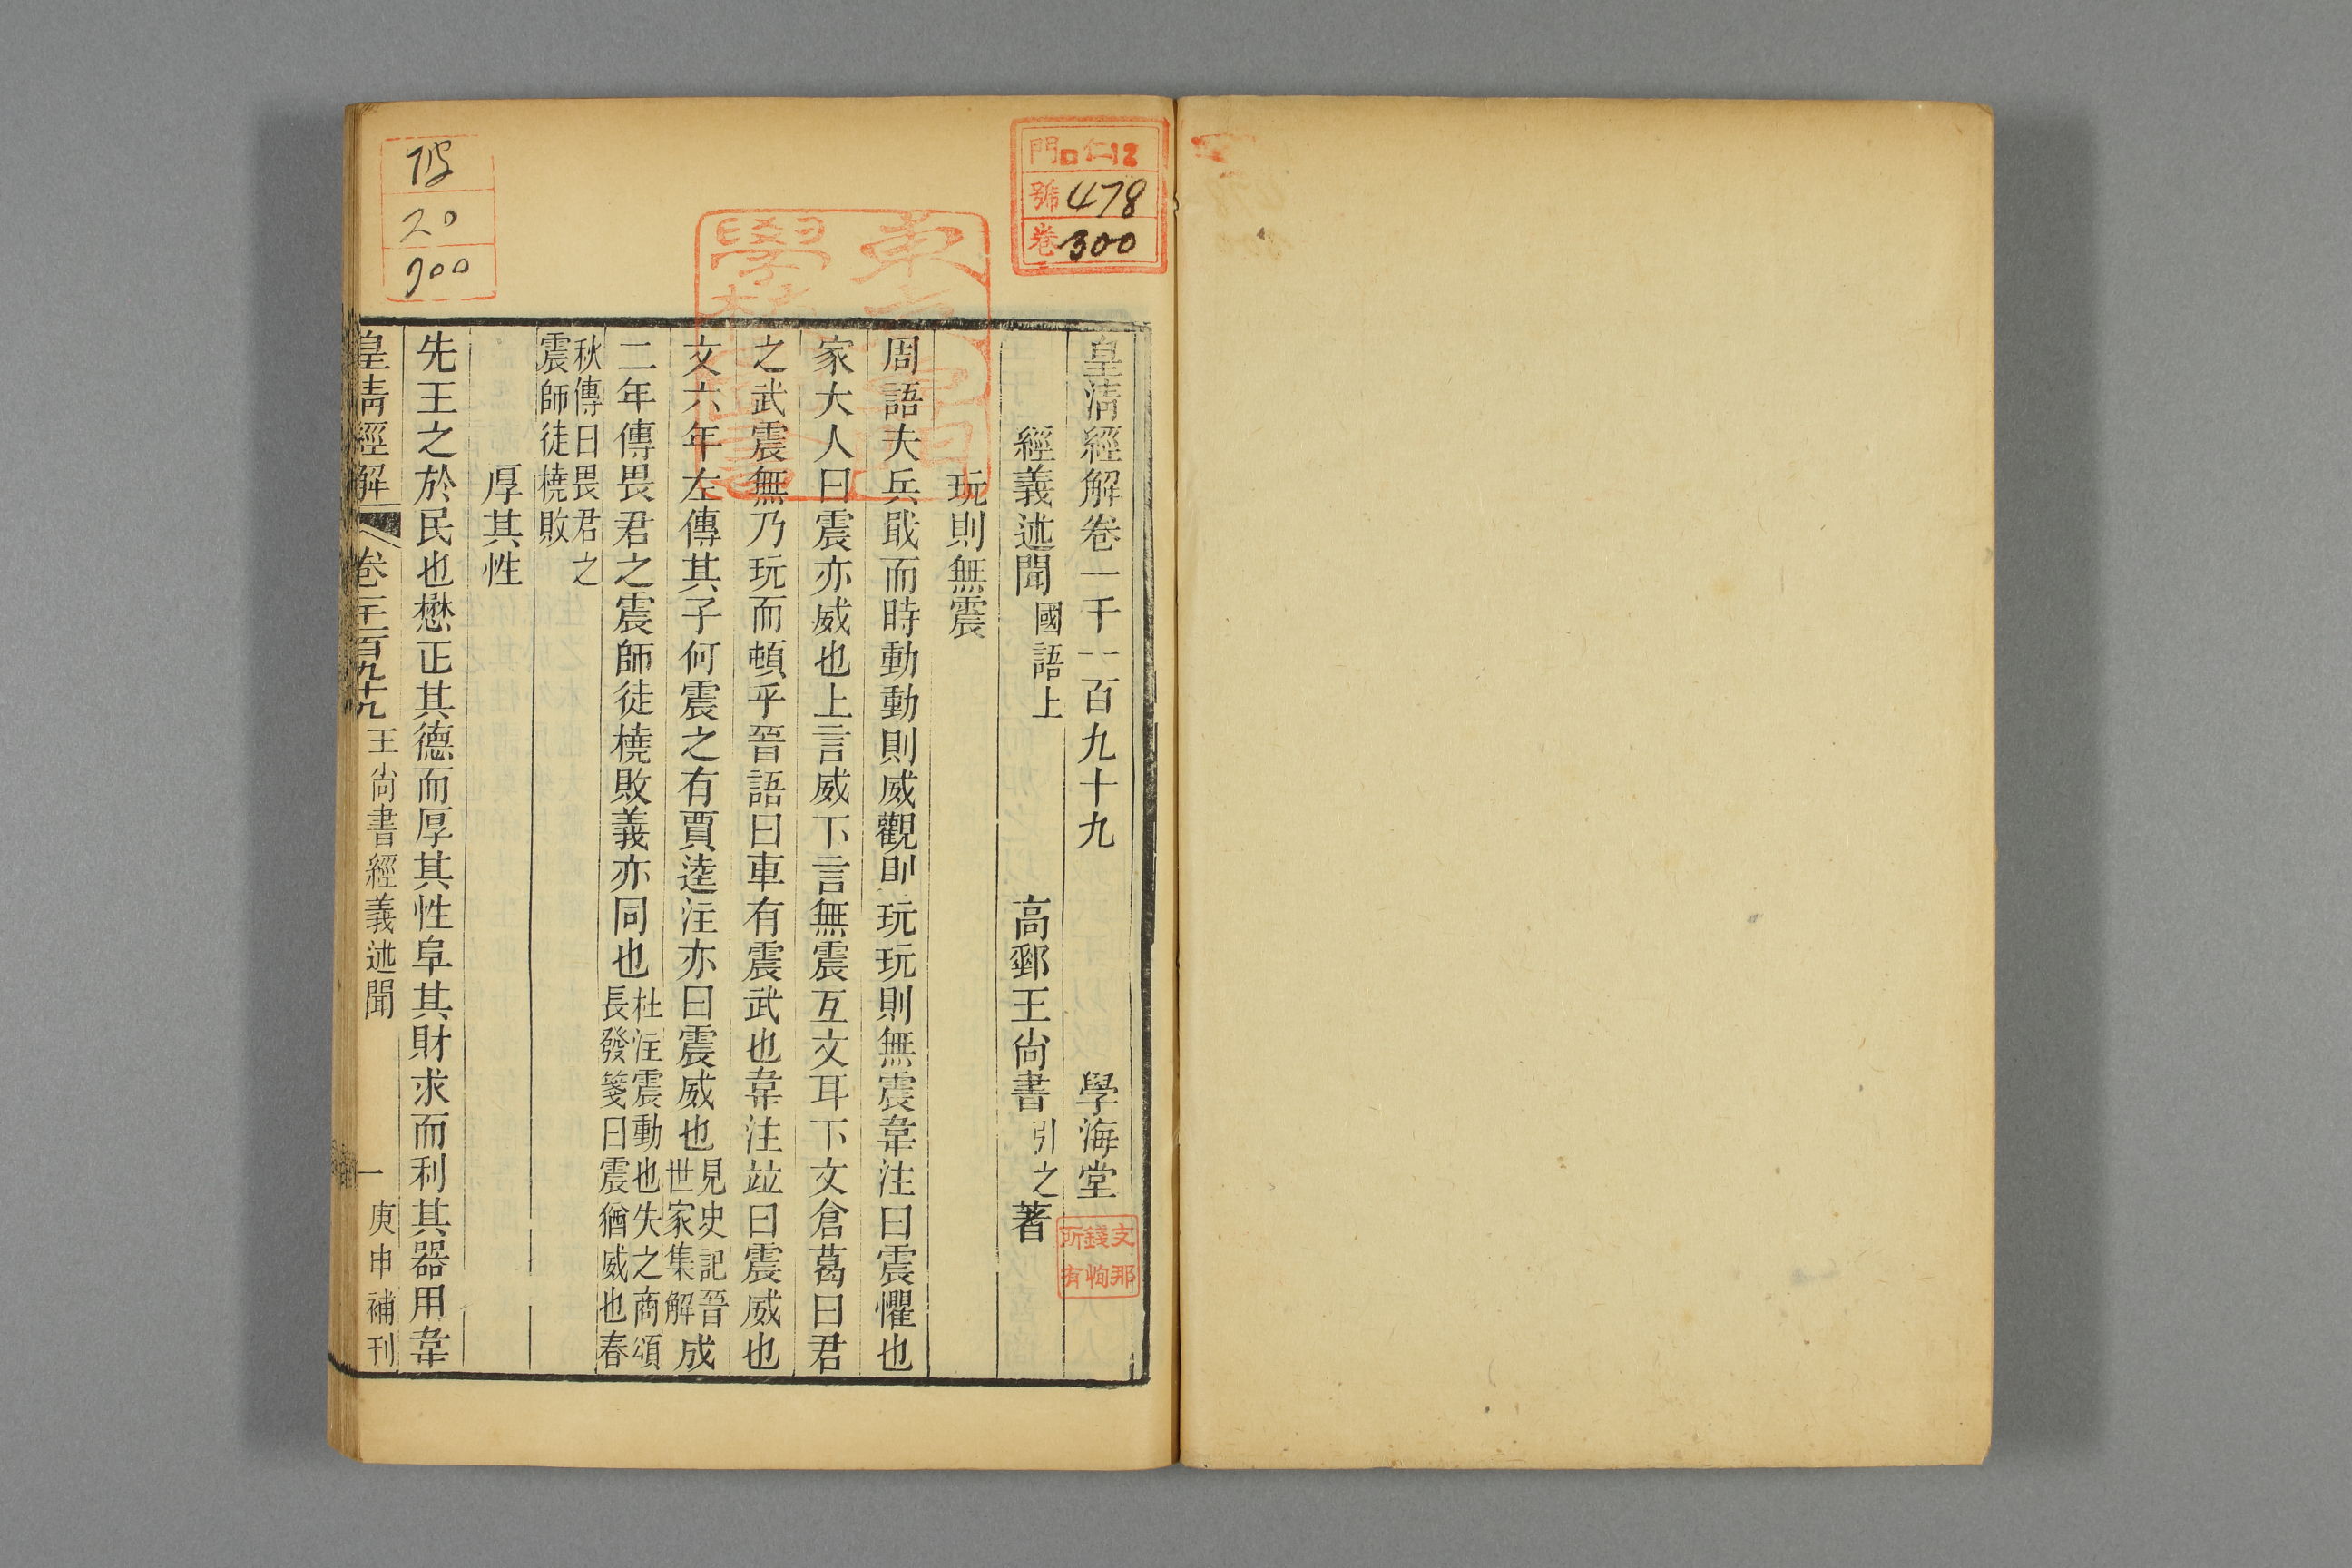 皇清經解卷一千一百九十九 學海堂
經義述聞 國語上 高郵王尚書引之著
玩則無震
周語夫兵戢而時動動則威觀則玩玩則無震韋注曰震懼也
家大人曰震亦威也上言威下言無震互文耳下文倉葛曰君
之武震無乃玩而頓乎晉語曰車有震武也韋注竝曰震威也
文六年左傳其子何震之有賈逵注亦曰震威也見史記晉世家集解成
二年傳畏君之震師徒橈敗義亦同也杜注震動也失之商頌長發箋曰震猶威也春
秋傳曰畏君之震師徒橈敗
厚其性
先王之於民也懋正其德而厚其性阜其財求而利其器用韋
皇清經解 卷一千一百九十九 王尚書經義述聞 一 庚申補刊
門 仁12
號 478
卷 300
20
900
支那
錢恂
所有